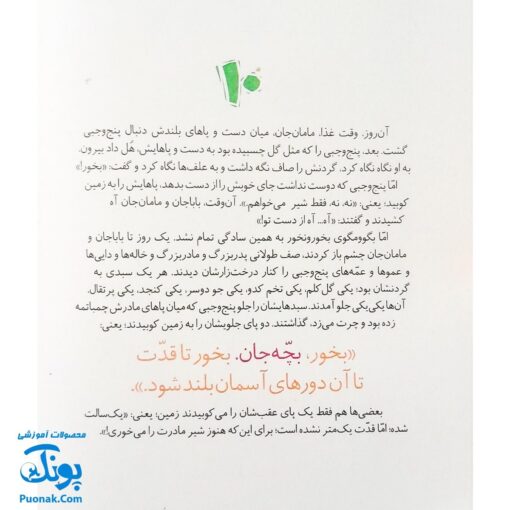 ۱۰
آن‌روز، وقت غذا، مامان‌جان، میان دست و پاهای بلندش دنبال پنج‌وجبی
گشت. بعد، پنج‌وجبی را که مثل گل چسبیده بود به دست و پاهایش، هُل داد بیرون.
به او نگاه نگاه کرد، گردنش را صاف نگه داشت و به علف‌ها نگاه کرد و گفت: «بخور!»
امّا پنج‌وجبی که دوست نداشت جای خوبش را از دست بدهد، پاهایش را به زمین
کوبید؛ یعنی: «نه، نه، فقط شیر می‌خواهم.». آن‌وقت، باباجان و مامان‌جان آه
کشیدند و گفتند: «آه... آه از دست تو!»
امّا بگوومگوی بخورونخور به همین سادگی تمام نشد. یک روز تا باباجان و
مامان‌جان چشم باز کردند، صف طولانی پدربزرگ و مادربزرگ و خاله‌ها و دایی‌ها
و عموها و عمّه‌های پنج‌وجبی را کنار درخت‌زارشان دیدند. هر یک سبدی به
گردنشان بود؛ یکی گل کلم، یکی تخم کدو، یکی جو دوسر، یکی کنجد، یکی پرتقال.
آن‌ها یکی‌یکی جلو آمدند. سبدهایشان را جلو پنج‌وجبی که میان پاهای مادرش چمباتمه
زده بود و چرت می‌زد، گذاشتند. دو پای جلویشان را به زمین کوبیدند؛ یعنی:
«بخور، بچّه‌جان. بخور تا قدّت
تا آن دورهای آسمان بلند شود.».
بعضی‌ها هم فقط یک پای عقب‌شان را می‌کوبیدند زمین؛ یعنی: «یک‌سالت
شده؛ امّا قدّت یک‌متر نشده است؛ برای این‌که هنوز شیر مادرت را می‌خوری!».
محصولات آموزشی
پونک
Puonak.Com